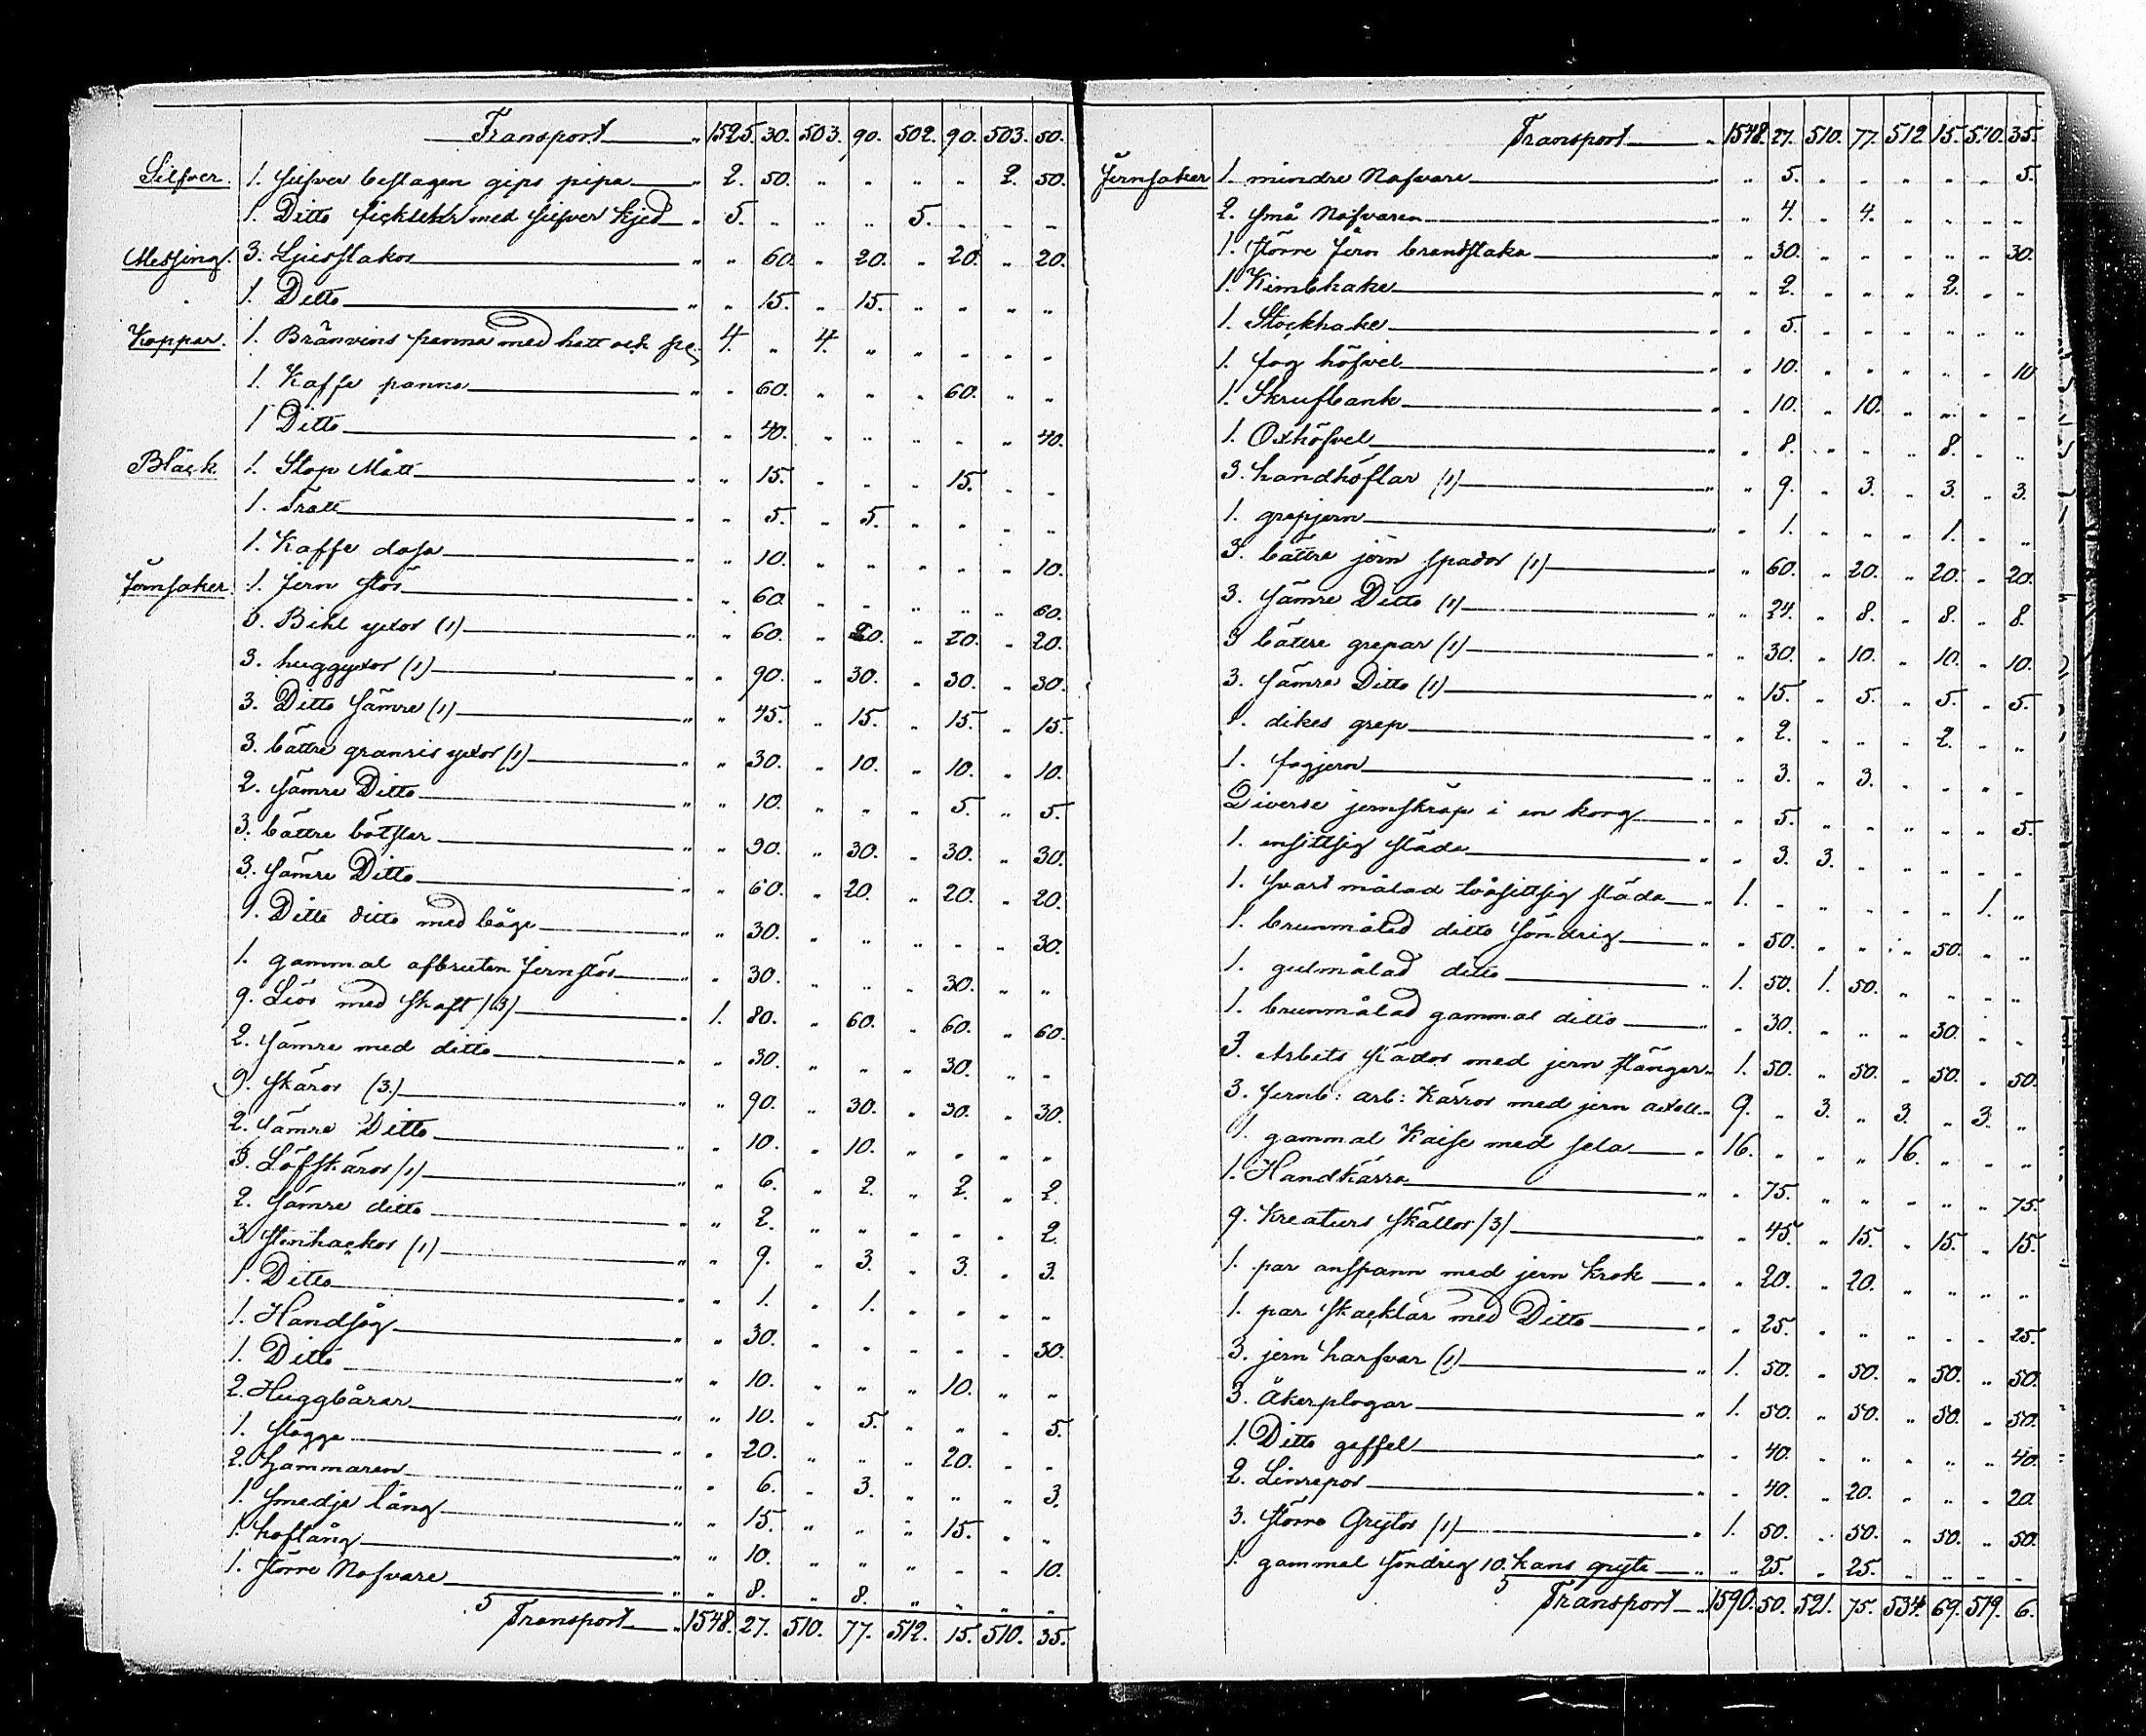 Transport " 1525. 30. 503. 90. 502. 90. 503. 50.
Silfver. 1. Silfver beslagen gips pipa " 2. 50. " " " " 2. 50.
1. Ditto med silfver kjed " 5. " " " 5. " " "
Messing. 3. Ljusstakor " " 60. " 20. " 20. " 20.
" 1. Ditto " " 15. " 15. " " " "
Koppar. 1. Bränvins panna med hatt och 4. " 4. " " " " "
1. Kaffe panna " " 60. " " " 60. " "
1 Ditto " " 40. " " " " " 40.
Bläck 1. Stop Mått " " 15. " " " 15. " "
1. Tratt " " 5. " 5. " " " "
1. Kaffe dosa " " 10. " " " " " 10.
Jernsaker. 1. Jern stör " " 60. " " " " " 60.
3. Bihl yxor (1) " " 60. " 20. " 20. " 20.
3. huggyxor (1) " " 90. " 30. " 30. " 30.
3. Ditto sämre (1) " " 45. " 15. " 15. " 15.
3. bättre granris yxor (1) " " 30. " 10. " 10. " 10.
2. sämre Ditto " " 10. " " " 5. " 5.
3. bättre " " 90. " 30. " 30. " 30.
3. sämre Ditto " " 60. " 20. " 20. " 20.
1. Ditto ditto med båge " " 30. " " " " " 30.
1. gammal afbruten Jernstör " " 30. " " " 30. " "
9. Liör med skaft (3) " 1. 80. " 60. " 60. " 60.
2. sämre med ditto " " 30. " " " 30. " "
9. skäror (3.) " " 90. " 30. " 30. " 30.
2. sämre Ditto " " 10. " 10. " " " "
3. Löfskäror (1) " " 6. " 2. " 2. " 2.
2. sämre ditto " " 2. " " " " " 2.
3 stenhackor (1) " " 9. " 3. " 3. " 3.
1. Ditto " " 1. " 1. " " " "
1. Handsåg " " 30. " " " " " 30.
1. Ditto " " 10. " " " 10. " "
2. Huggbårar " " 10. " 5. " " " 5.
1. slägga " " 20. " " " 20. " "
2. hammaren " " 6. " 3. " " " 3.
1. smedje tång " " 15. " " " 15. " "
1. hoftång " " 10. " " " " " 10.
1. större Nafvare " " 8. " 8. " " " "
5 Transport " 1548. 27. 510. 77. 512. 15. 510. 35.
Transport " 1548. 27. 510. 77. 512 15. 510. 35.
Jernsaker 1. mindre Nafvare " " 5. " " " " " 5.
2. små Nafvaren " " 4. " 4. " " " "
1. större Jern brandstake " " 30. " " " " " 30.
1. Kimbhake " " 2. " " " 2. " "
1. Stockhake " " 5. " " " " " "
1. fog höfvel " " 10. " " " " " 10
1. Skrufbank " " 10. " 10. " " " "
1. Oxhöfvel " " 8. " " " 8. " "
3. handhöflar (1) " " 9. " 3. " 3. " 3.
1. grepjern " " 1. " " " 1. " "
3. bättre jern spador (1) " " 60. " 20. " 20. " 20.
3. sämre Ditto (1) " " 24. " 8. " 8. " 8.
3 bättre grepar (1) " " 30. " 10. " 10. " 10.
3. sämre Ditto (1) " " 15. " 5. " 5. " 5.
1. dikes grep " " 2. " " " 2. " "
1. fogjern " " 3. " 3. " " " "
Diverse jernskräp i en korg " " 5. " " " " " 5.
1. ensittsig släde " " 3. 3. " " " " "
1. svart målad tvåsittsig släde " 1. " " " " " 1. "
1. brunmålad ditto söndrig " " 50. " " " 50. " "
1. gulmålad ditto " 1. 50. 1. 50. " " " "
1. brunmålad gammal ditto " " 30. " " " 30. " "
3. Arbets slädor med jern stänger " 1. 50. " 50. " 50. " 50.
3. Jernb: arb: Kärror med jern axell " 9. " 3. " 3. " 3. "
1. gammal Kaise med sela " 16. " " " 16. " " "
1. Handkärra " " 75. " " " " " 75.
9. Kreaturs skällor (3) " " 45. " 15. " 15. " 15.
1. par anspann med jern krok " " 20. " 20. " " " "
1. par skacklar med Ditto " " 25. " " " " " 25.
3. jern harfvar (1) " 1. 50. " 50. " 50. " 50.
3. Åkerplogar " 1. 50. " 50. " 50. " 50.
1. Ditto gaffel " " 40. " " " " " 40.
2. Linrepor " " 40. " 20. " " " 20.
3. större Grytor (1) " 1. 50. " 50. " 50. " 50.
1 gammal söndrig 10. kans gryta " " 25. " 25. " " " "
5 Transport " 1590. 50. 521. 75. 534. 69. 519. 6.